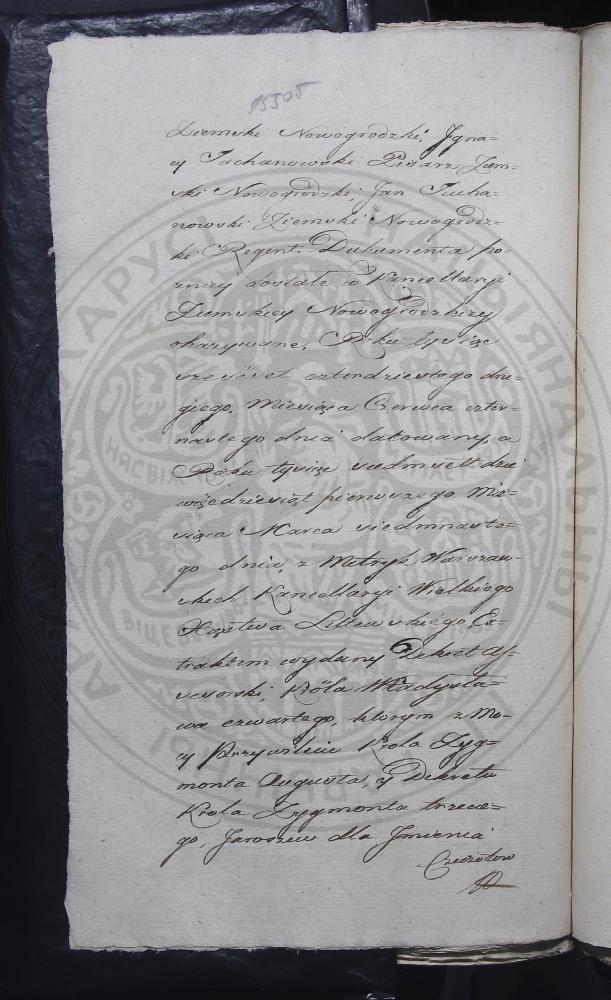 15505
Ziemski Nowogrodzki, Jgna=
cy Tuchanowski Pisarz Ziem=
ski Nowogrodzki, Jan Tucha=
nowski Ziemski Nowogrodz=
ki Regent. Dukumenta po=
zniey dostałe w Kancellaryi
Ziemskiey Nowogrodzkiey
okazywane, Roku tysiąc
szescset czterdziestego dru=
giego, Miesiąca Czerwca czter=
nastego dnia datowany, a
Roku tysiąc siedmsett dzie
więdziesiąt pierwszego Mie=
siąca Marca siedmnasto=
go dnia, z Metryk Warszaw=
skich Kancellaryi Wielkiego
Xięstwa Littewskiego Ex=
traktem wydany Dekret As=
sesorski, Króla Władysła=
wa czwartego, ktorym z Mo=
cy Przywileiu Krola Zyg=
monta Augusta, y Dekretu
Krola Zygmonta trzecie=
go, Jaroszew dla Jmienia
Czeczotow